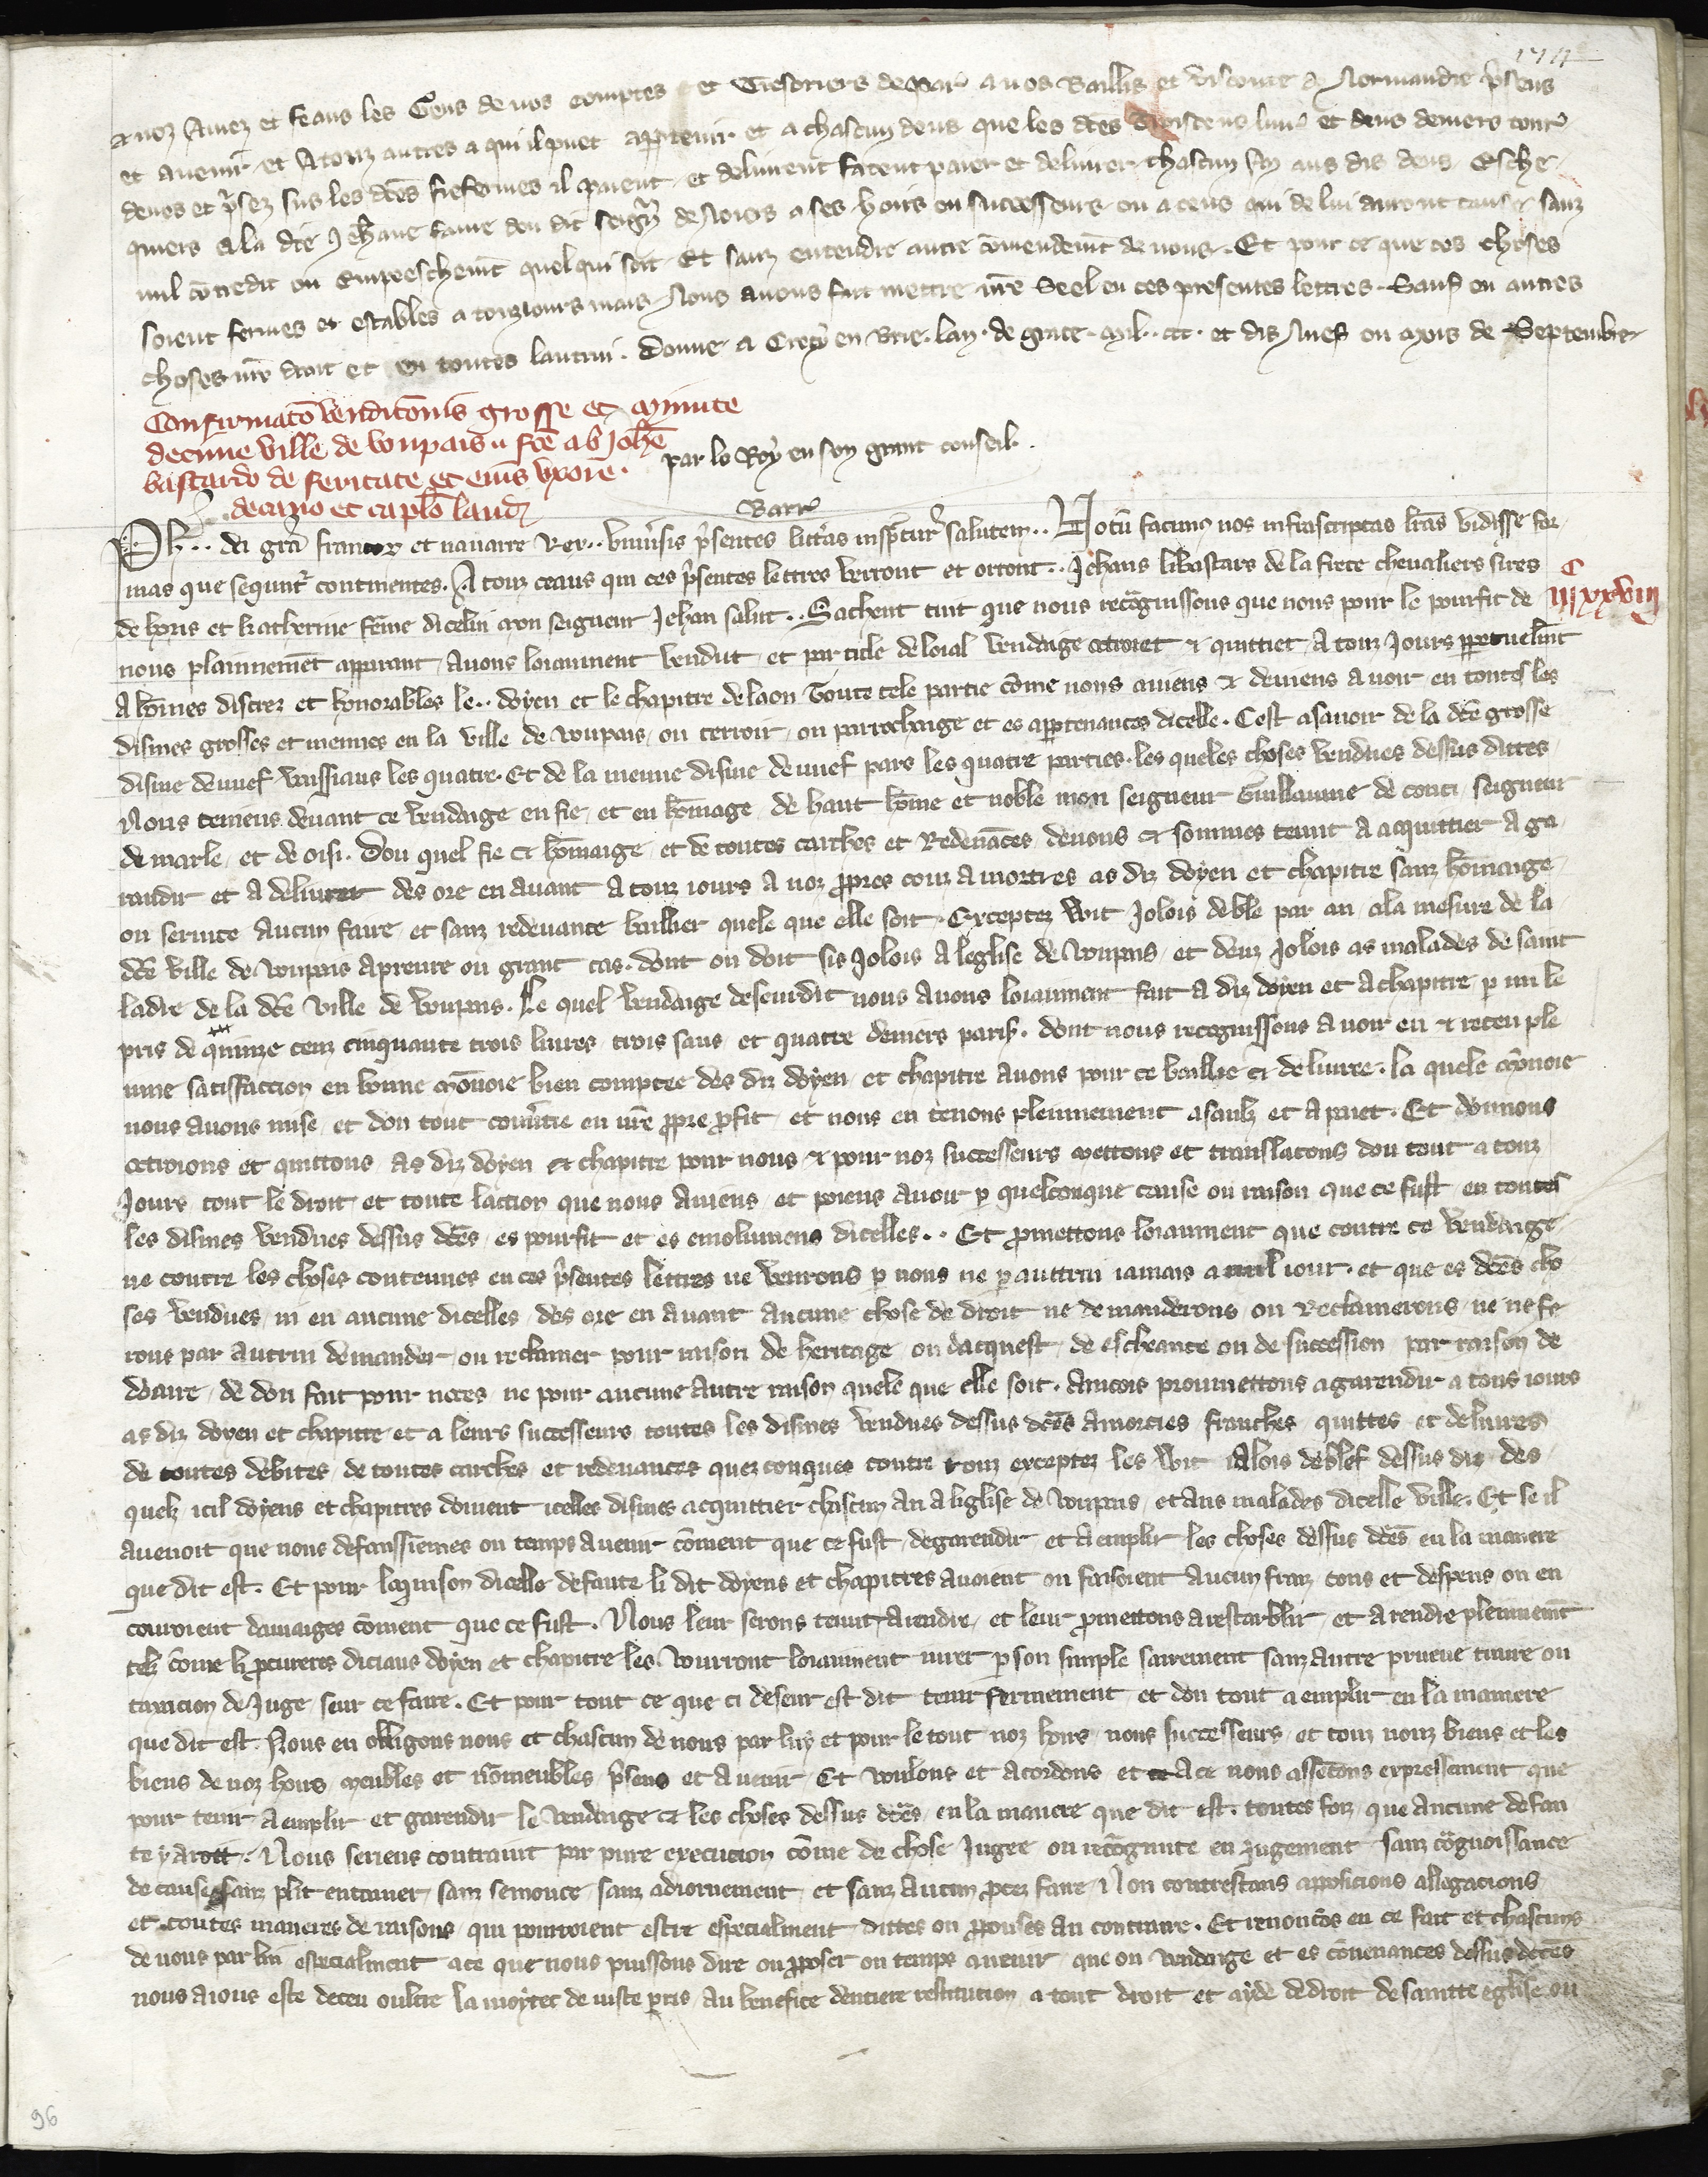 a noz Amez et feaus les Gens de nos comptes et Tresoriers de Par̃ a nos Baillis et viconte de Normandie p̃sens
et avenir et A touz autres a qui il puet appartenir et a chascun deus que les dc̃es Troiscens livr̃ et deus deniers tour̃
devos et p̃sez sus les dc̃es fiefermes il paient et delivrent facent paier et delivrer chascun an aus dis deus Eschi
quiers a la dc̃e Jeh̃ane fame dou dit seign̾ de Noiers a ses hoirs ou successeurs ou a ceus qui de lui auront cause sanz
nul cõtredit ou Empeeschem̃t quel qui soit Et sanz entendre autre cõmendem̃t de nous. Et pour ce que ces choses
soient fermes et estables a touziours mais Nous avons fait mettre nr̃e Seel en ces presentes lettres. Sauf en autres
choses nr̃e droit et en toutes lautrui. Donne a Crecy en Brie. lan. de grace. mil. ccc. et dis Nuef ou mois de Septembre
Confirmatõ venditõnis grosse et minute
decime ville de Voupais. fc̃e ab Joh̃e
bastardo de feritate et eius uxore.
decano et capl̃o laud̃
par lo Roy en son grant conseil.
Barr̃
Ph̃.. dei gr̃a francor̃ et navarre Rex.. Univ̾sis p̃sentes litt̾as insp̃ctur̃ salutem.. Notũ facimꝰ nos infrascriptas lr̃as vidisse for
mas que sequnt̾ continentes. A touz ceaus qui ces p̃sentes lettres verront et orront.. Jehans li bastars de la fierte chevaliers sires
C
III XXVIII
de hois et katherine fẽme dicelui mon seigneur Jehan salut.. Sachent tuit que nous recõgnissons que nous pour le pourfit de
nous plainnemẽt apparant avons loiaument vendut et par title de loial vendaige ottroiet & quittiet a touz jours p̱petuelm̃t
A hõmes discrez et honorables le.. doyen et le chapitre de laon Toute tele partie cõme nous aviens & deviens avoir en toutes les
dismes grosses et menues en la ville de voupais ou terroir ou parrochaige et es appartenances dicelle. Cest asavoir de la dc̃e grosse
disme de nuef vaissiaus les quatre. Et de la menue disme de nuef pars les quatre parties. les queles choses vendues dessus dittes
Nous teniens devant ce vendaige en fie et en hõmage de haut hõme et noble mon seigneur Guillaume de couci seigneur
de marle et de oisi. Dou quel fie et hõmaige et de toutes carches et Redevãces devons & sommes tenut a acquittier a ga
randir et a delivrer des ore en avant a touz iours a noz p̱pres couz amorties as diz doyen et chapitre sanz hõmaige
ou service aucun faire et sanz redevance baillier quele que elle soit. Exceptez Wit Jalois de ble par an a la mesure de la
dc̃e ville de voupais a prenre ou grant tas. dont on doit sis Jalois a leglise de voupais et deuz Jalois as malades de saint
ladre de la dc̃e ville de voupais. Le quel vendaige deseurdit nous avons loiaument fait a diz doyen et a chapitre p̱ mi le
pris de quinze cenz cinquante trois livres trois saus et quatre deniers paris̃. dont nous recognissons avoir eu & receu ple
nne satisfaction en bonne mõnoie bien comptee des diz doyen et chapitre avons pour ce baillie et delivre. la quele mõnoie
nous avons mise et dou tout cõv̾tie en nr̃e p̱pre p̱fit et nous en tenons plennement a saulz et a paiet. Et donnons
ottroions et quittons as diz doyen & chapitre pour nous & pour noz successeurs mettons et translatons dou tout a touz
Jours tout le droit et toute laction que nous aviens et poiens avoir p̱ quelconque cause ou raison que ce fust en toutes
les dismes vendues dessus dc̃es es pourfit et es emolumens dicelles.. Et p̱mettons loiaument que contre ce vendaige
ne contre les choses contenues en ces p̃sentes lettres ne venrons p̱ nous ne p̱ auttrui iamais a nul iour. et que es dc̃es cho
ses vendues ni en aucune dicelles des ore en avant aucune chose de droit ne demanderons ou Reclamerons ne ne fe
rons par autrui demander ou reclamer pour raison de heritage ou dacquest de escheance ou de succession par raison de
doaire de don fait pour noces ne pour aucune autre raison quele que elle soit. Ancois proumettons a garendir a tous iours
as diz doyen et chapitre et a leurs successeurs toutes les dismes vendues dessus dc̃es amorties franches quittes et delivres
de toutes debites de toutes carches et redevances quezconques contre touz exceptez les Wit ialois de blef dessus diz des
quelz icil doyens et chapitres doivent icelles dismes acquittier chascun an a leglise de voupais et aus malades dicelle ville. Et se il
avenoit que nous defaussiemes ou temps avenir cõment que ce fust de garendir et a emplir les choses dessus dc̃es en la maniere
que dit est. Et pour loquison dicelle defaute li dit doyens et chapitres avoient ou faisoient aucun fraiz cous et despens ou en
couroient damaiges cõment que ce fust. Nous leur serons tenut a rendre et leur p̱mettons a restaublir et a rendre plennem̃t
telz cõme li p̱cureres diciaus doyen et chapitre les vourront loiaument iurer p̱ son simple sairement sanz autre prueve traire ou
taxacion de Juge seur ce faire. Et pour tout ce que ci deseur est dit tenir fermement et dou tout a emplir en la maniere
que dit est. Nous en obligons nous et chascun de nous par luy et pour le tout noz hoirs nous successeurs et touz nouz biens et les
biens de noz hoirs meubles et nõmeubles p̃sens et avenir Et voulons et acordons et a ce nous assẽtons expressement que
pour tenir a emplir et garendir le vendaige & les choses dessus dc̃es en la maniere que dit est. toutes foiz que aucune defau
te y aroit. Nous seriens contraint par pure execucion cõme de chose Jugee ou recõgnute en Jugement sanz cõgnoissance
de cause sanz plait entamer sanz semonce sanz adiornement et sanz aucun p̱cez faire Non contrestans apposicions allegacions
et toutes manieres de raisons qui pourroient estre especialment dittes ou p̱pouses au contraire. Et renoncõs en ce fait et chascuns
de nous par lui especialment a ce que nous puissons dire ou p̱poser ou temps avenir que ou vendaige et es cõvenances dessus dc̃es
nous aions este deceu oultre la moytee de iuste p̱ris au benefice dentiere restitution a tout droit et ayde de droit de saintte eglise ou
96